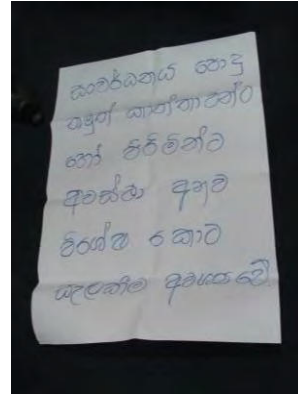 සංවර්ධනය පොදු
නමුත් කාන්තාවන්ට
හෝ පිරිමින්ට
අවස්ථා අනුව
විශේෂ කොට
සැලකීම අවශ්‍ය වේ.